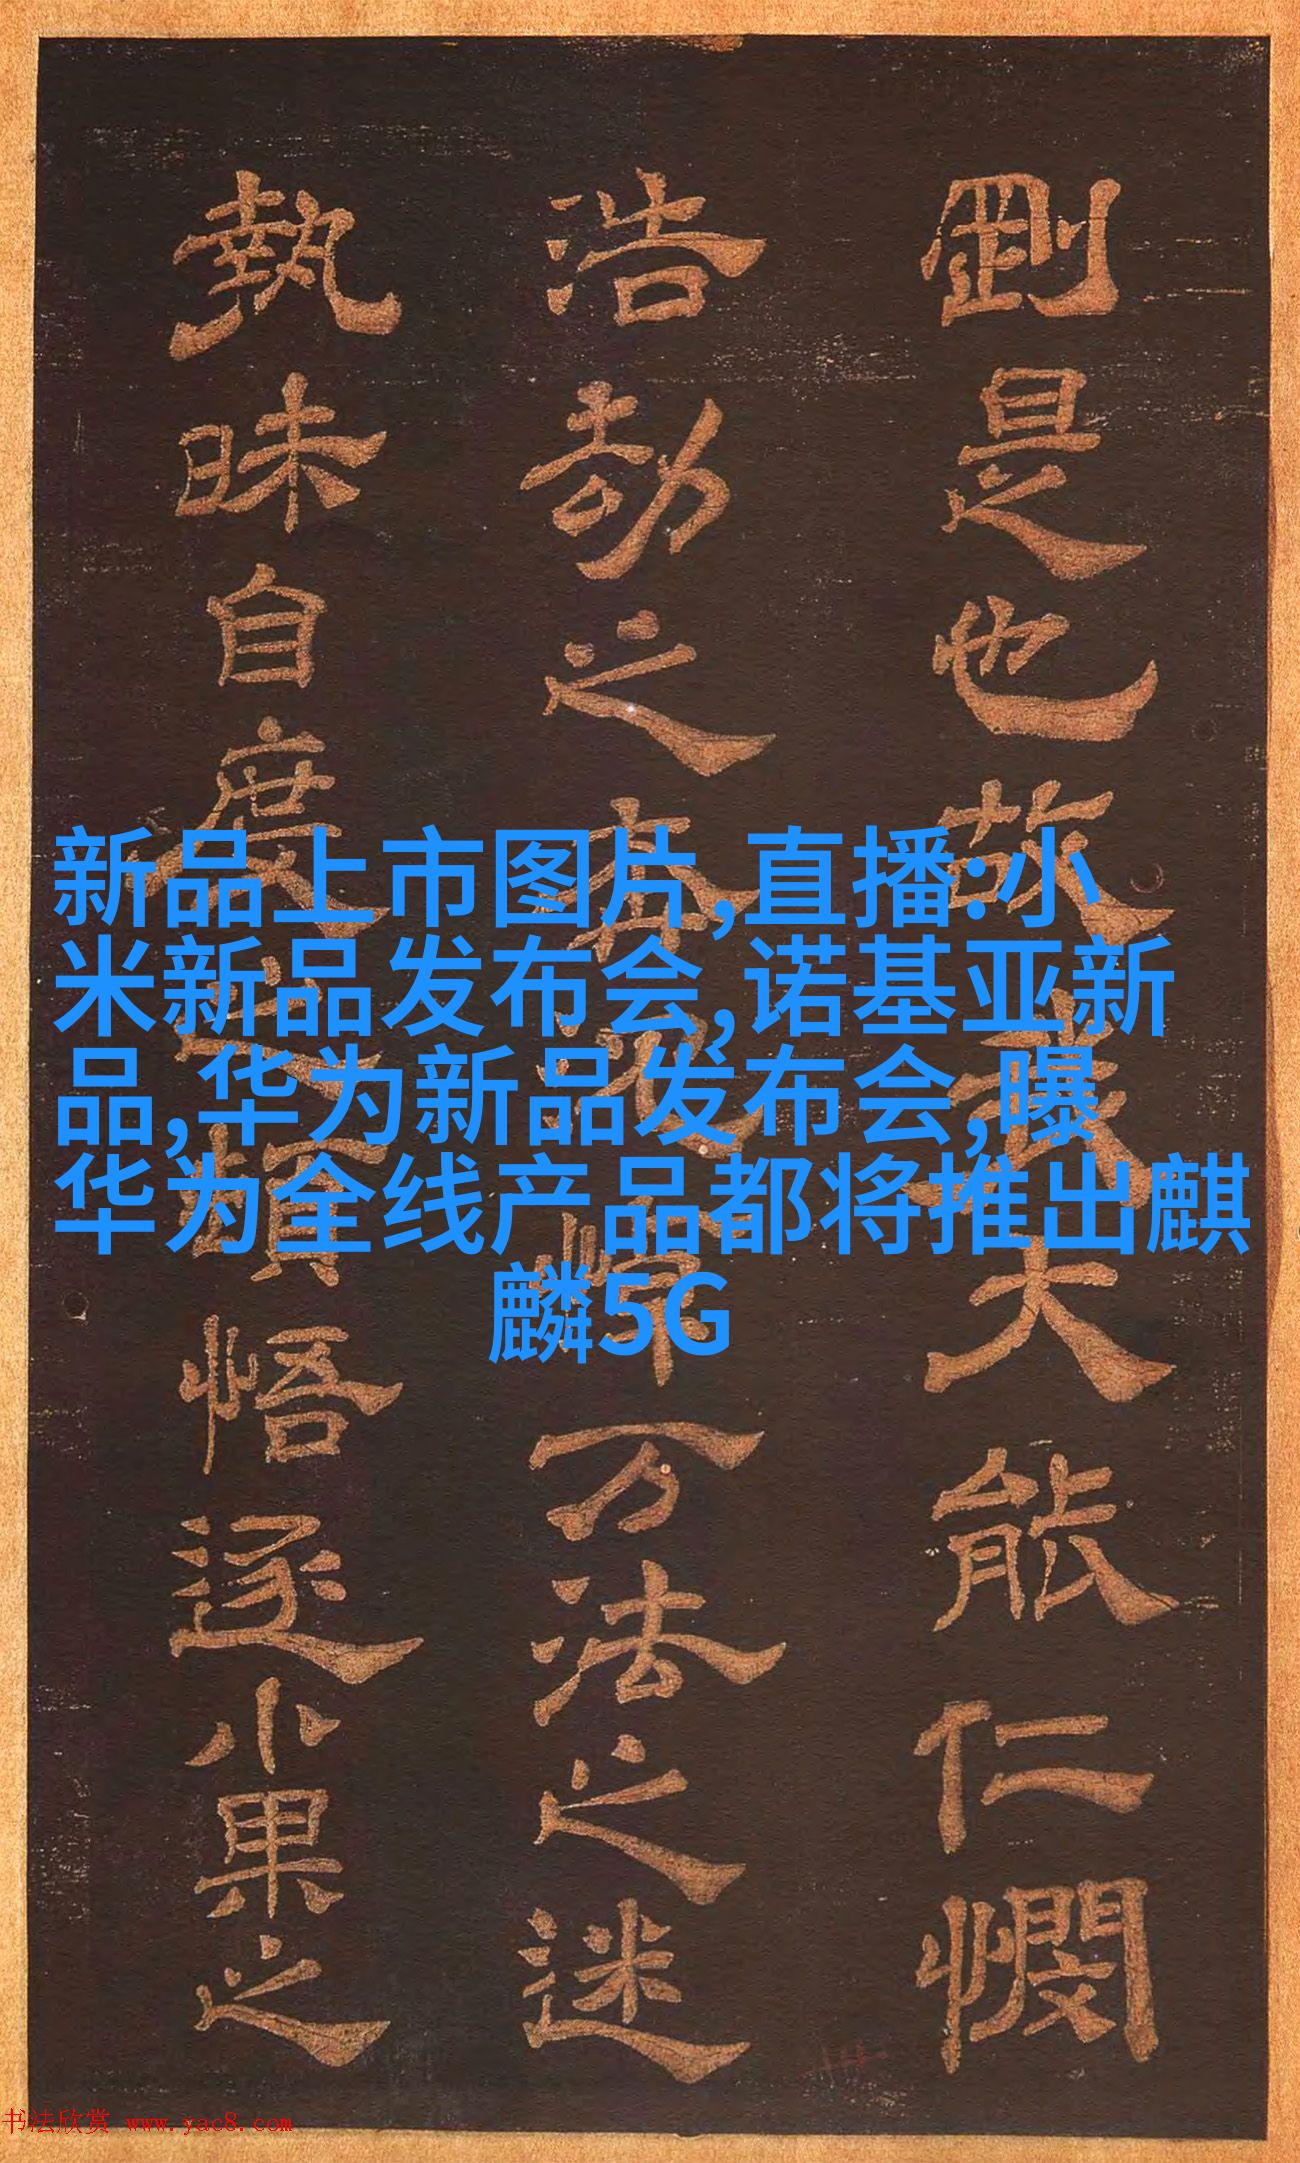 新品上市图片,直播:小
米新品发布会,诺基亚新
品,华为新品发布会,曝
华为全线产品都将推出麒
麟5G
剛是也故我大能仁憫
浩劫之万法之迷
執昧自度之類悟逐小果之
书法欣赏 www.yac8.com